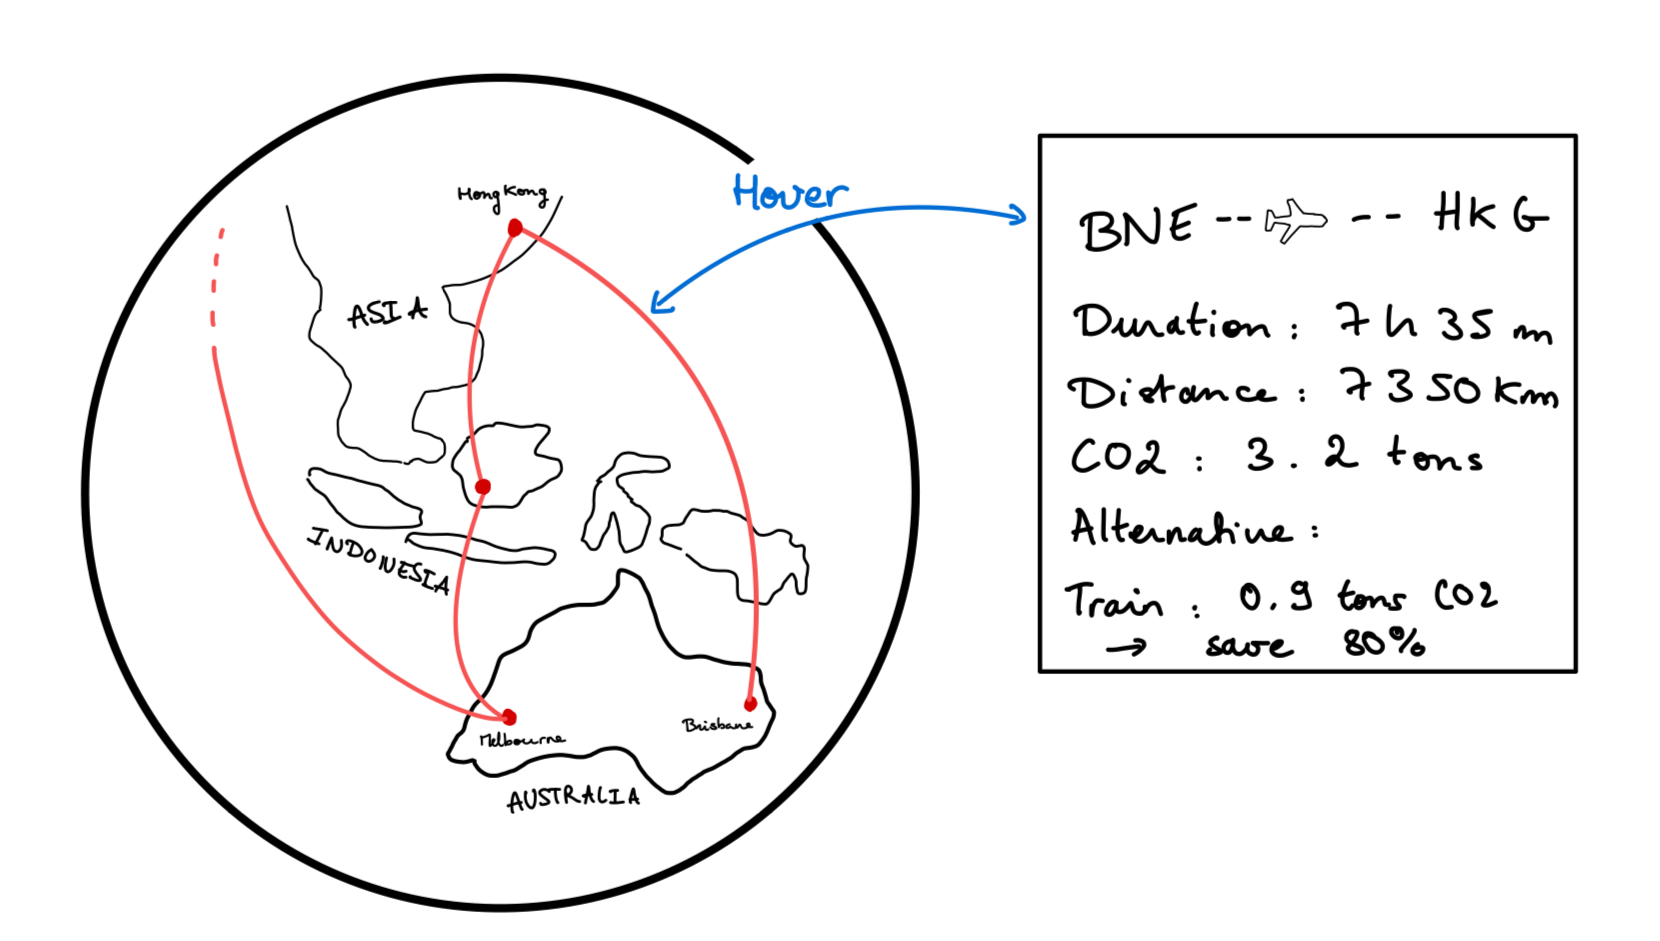 Hong Kong
Hover
ASIA
INDONESIA
Melbourne
Brisbane
AUSTRALIA
BNE -- -- HKG
Duration : 7 h 35 m
Distance : 7350 Km
CO2 : 3.2 tons
Alternative :
Train : 0.9 tons CO2
→ save 80%